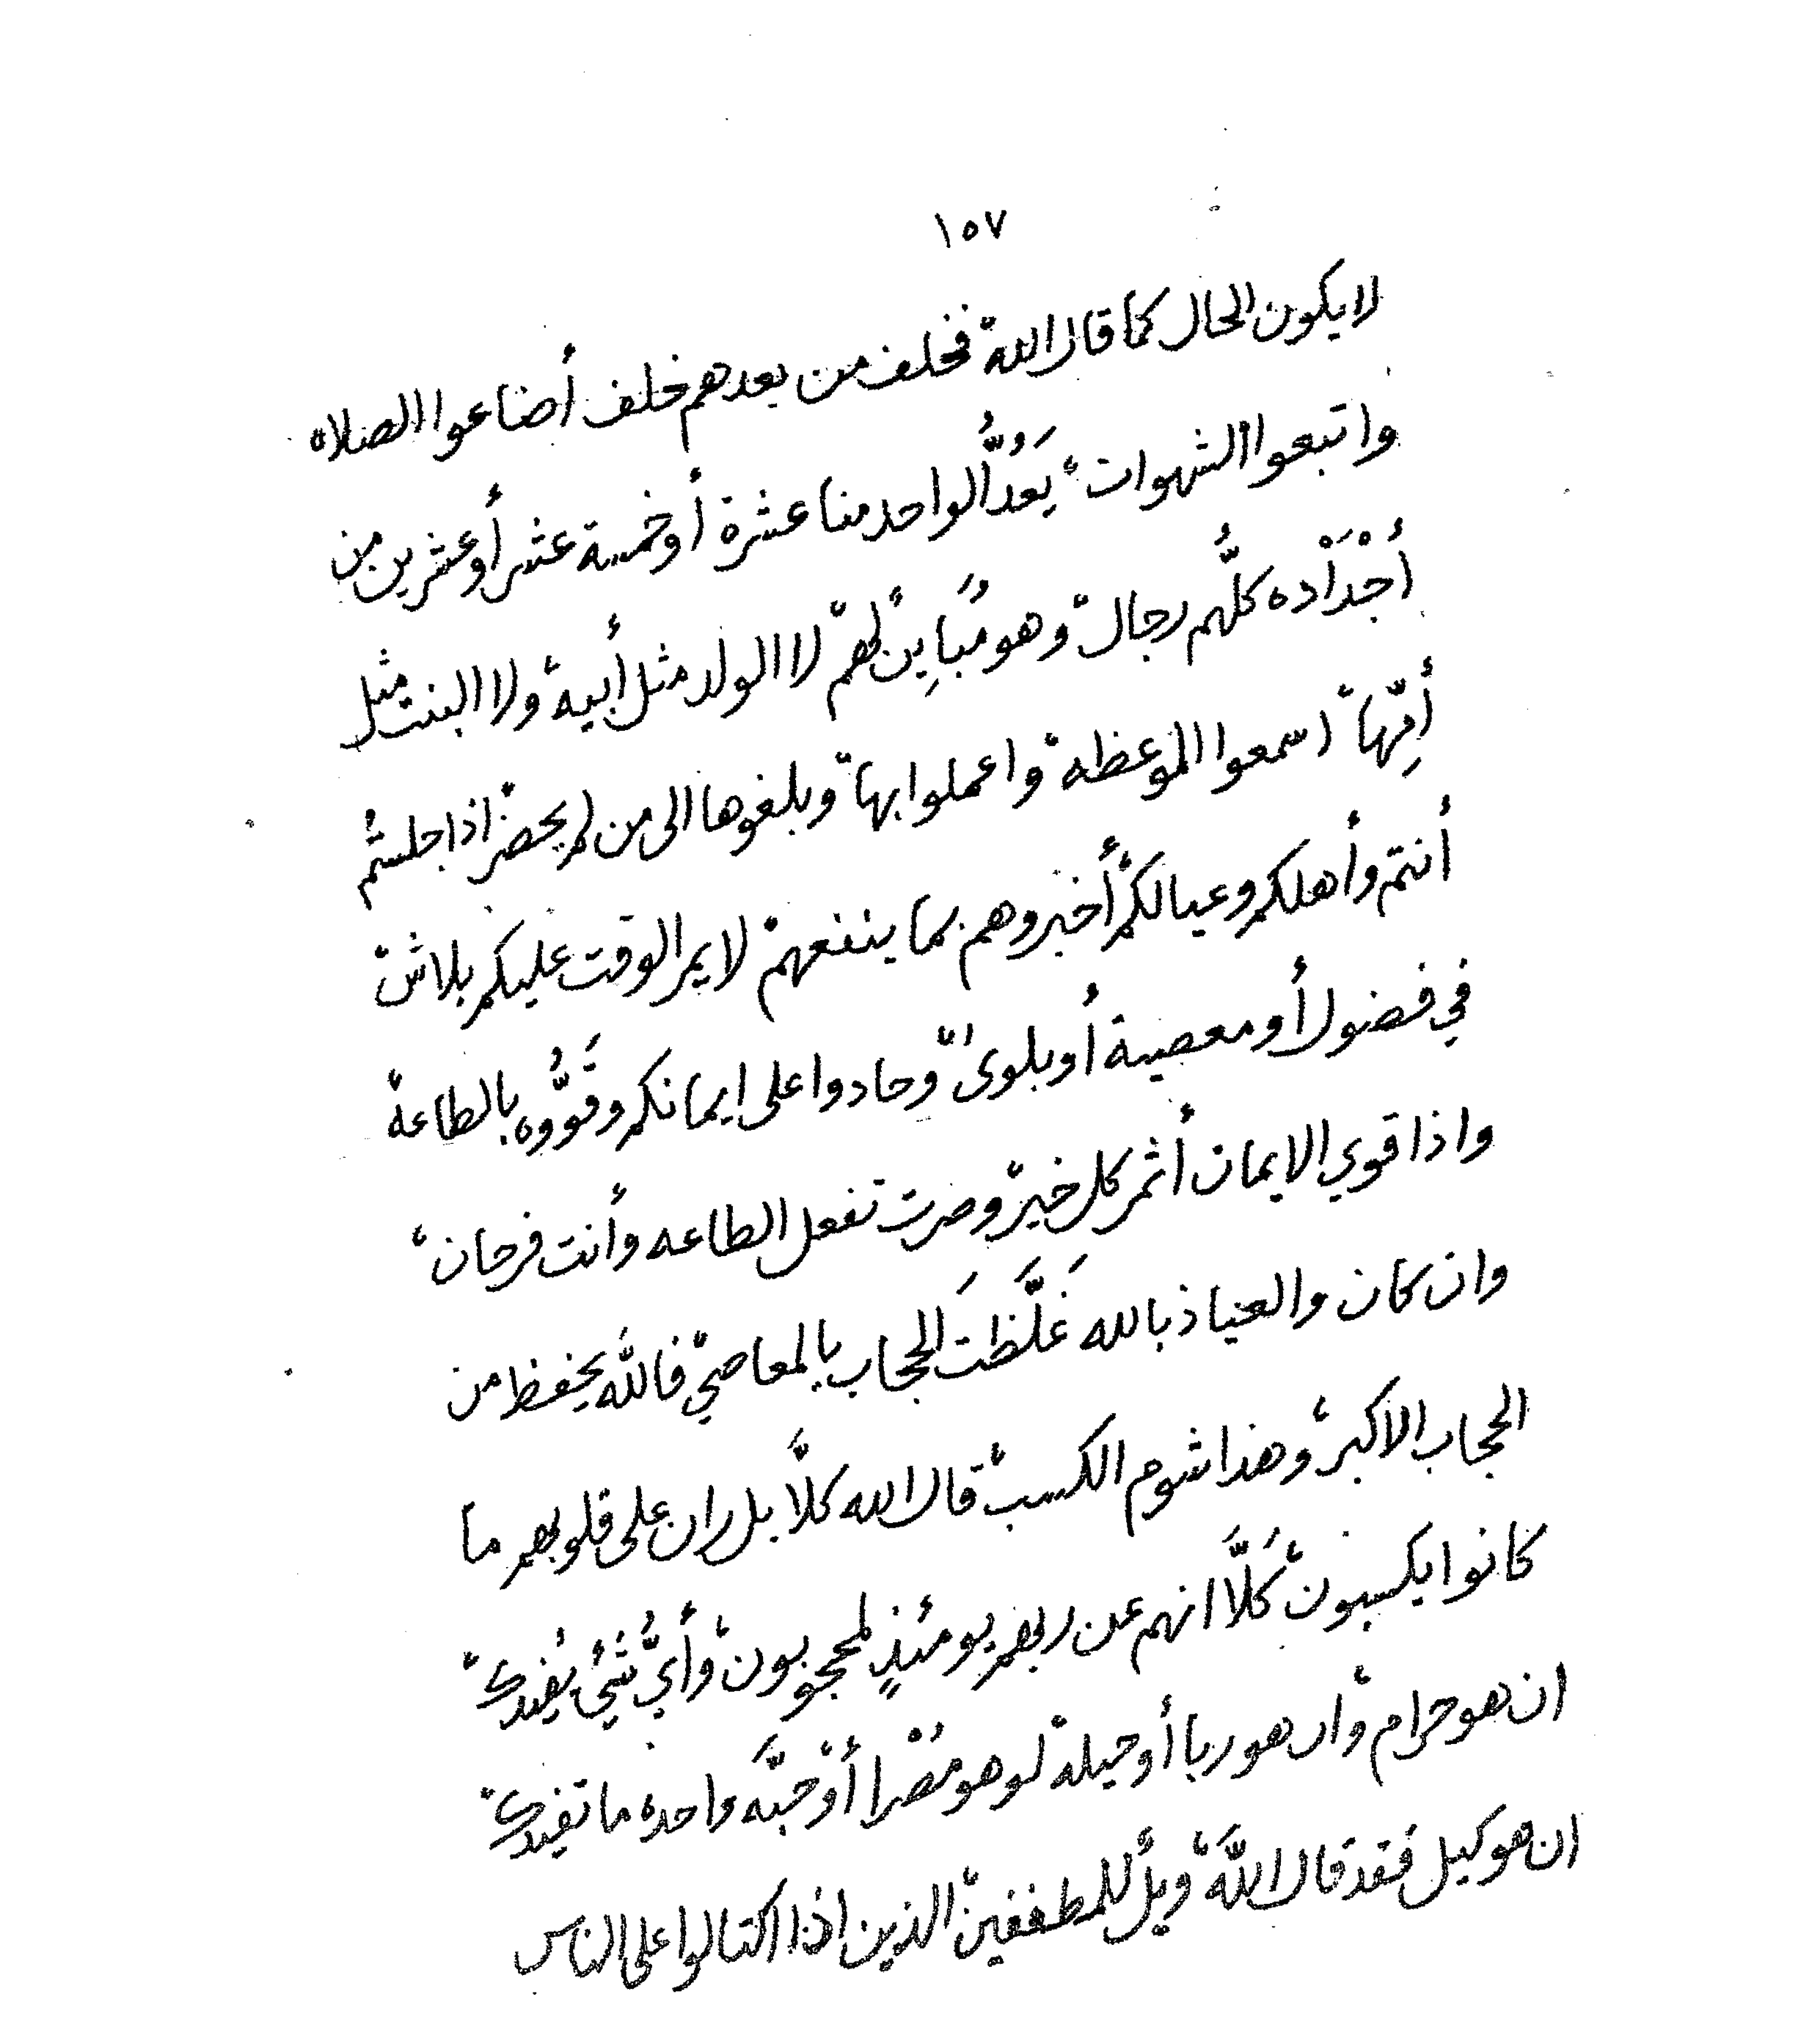 ١٥٧
لا يكون الحال كما قال الله، فخلف من بعدهم خلف أضاعوا الصلاه
واتبعوا الشهوات، يَعُدُّ الواحد منا عشرة أو خمسة عشر أو عشرين من
أجْدَاْده كلُّهم رجال، وهو مُبَايِنٌ لهم، لا الولد مثل أبيه، ولا البنت مثل
أمِّها، اسمعوا الموعظه، واعملوا بها، وبلغوها الى من لم يحضر، اذا جلستُم
أنتم وأهلكم وعيالكم، أخبروهم بما ينفعهم، لا يمر الوقت عليكم بلاش،
في فضول أو معصية أو بلوىٰ، وحادوا على ايمانكم وقَوُّوه بالطاعة،
واذا قوي الايمان أثمر كل خير، وصرت تفعل الطاعه وأنت فرحان،
وان كان والعياذ بالله غَلَّظتَ الحجاب بالمعاصي، فالله يحفظ من
الحجاب الاكبر، وهذا شوم الكسب، قال الله كلَّا بل ران على قلوبهم ما
كانوا يكسبون، كَلَّا انهم عن ربهم يومئذٍ لمحجوبون، وأيُّ شيئ يُفيدك،
ان هو حرام، وان هو ربا أو حيلة، لو هو مُصْرا أوْ حَبَّه واحده ما تفيدك،
ان هو كيل فقد قال اللَّه، ويلٌ للمطففين، الذين اذا اكتالوا على الناس